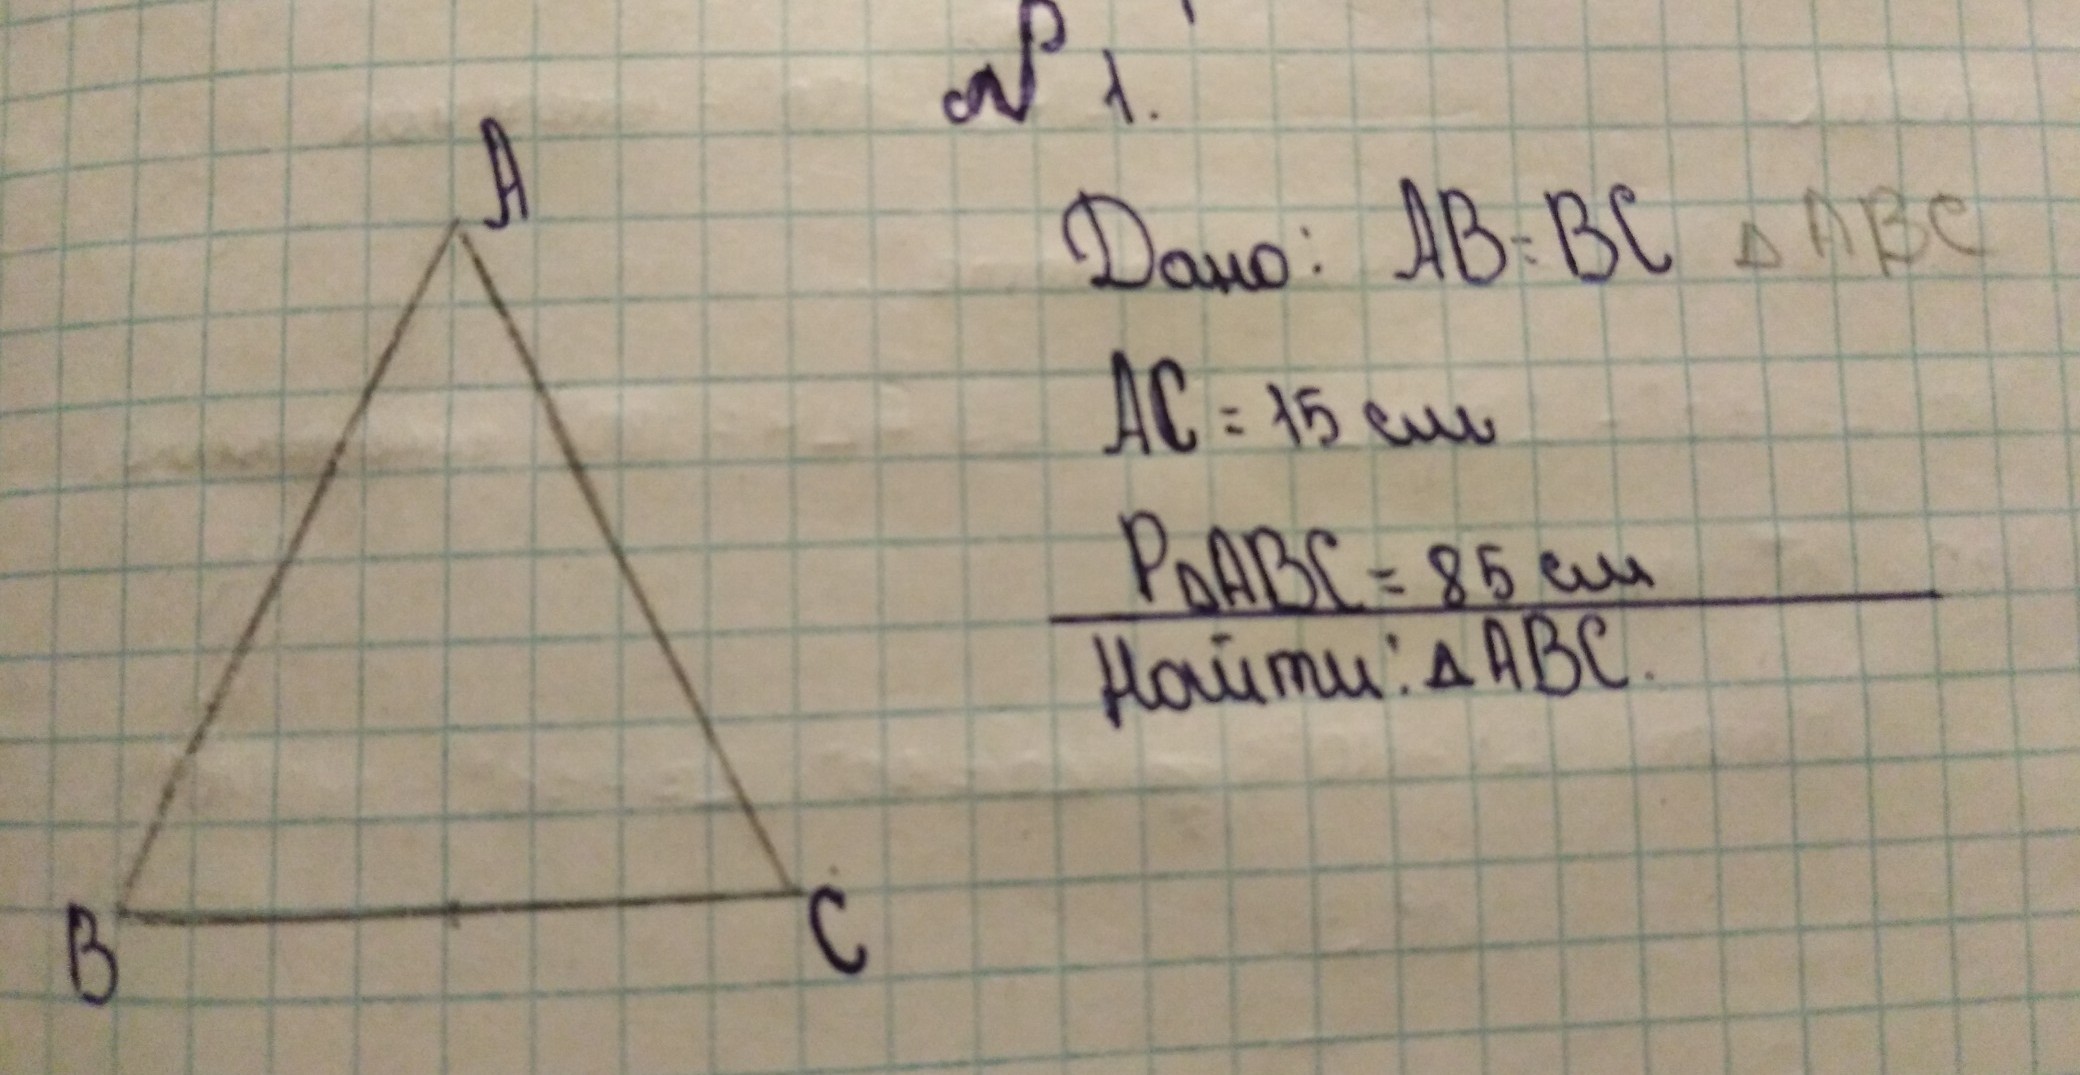 № 1.
A
Дано: AB = BC △ABC
AC = 15 см
P△ABC = 85 см
Найти: △ABC.
B
C